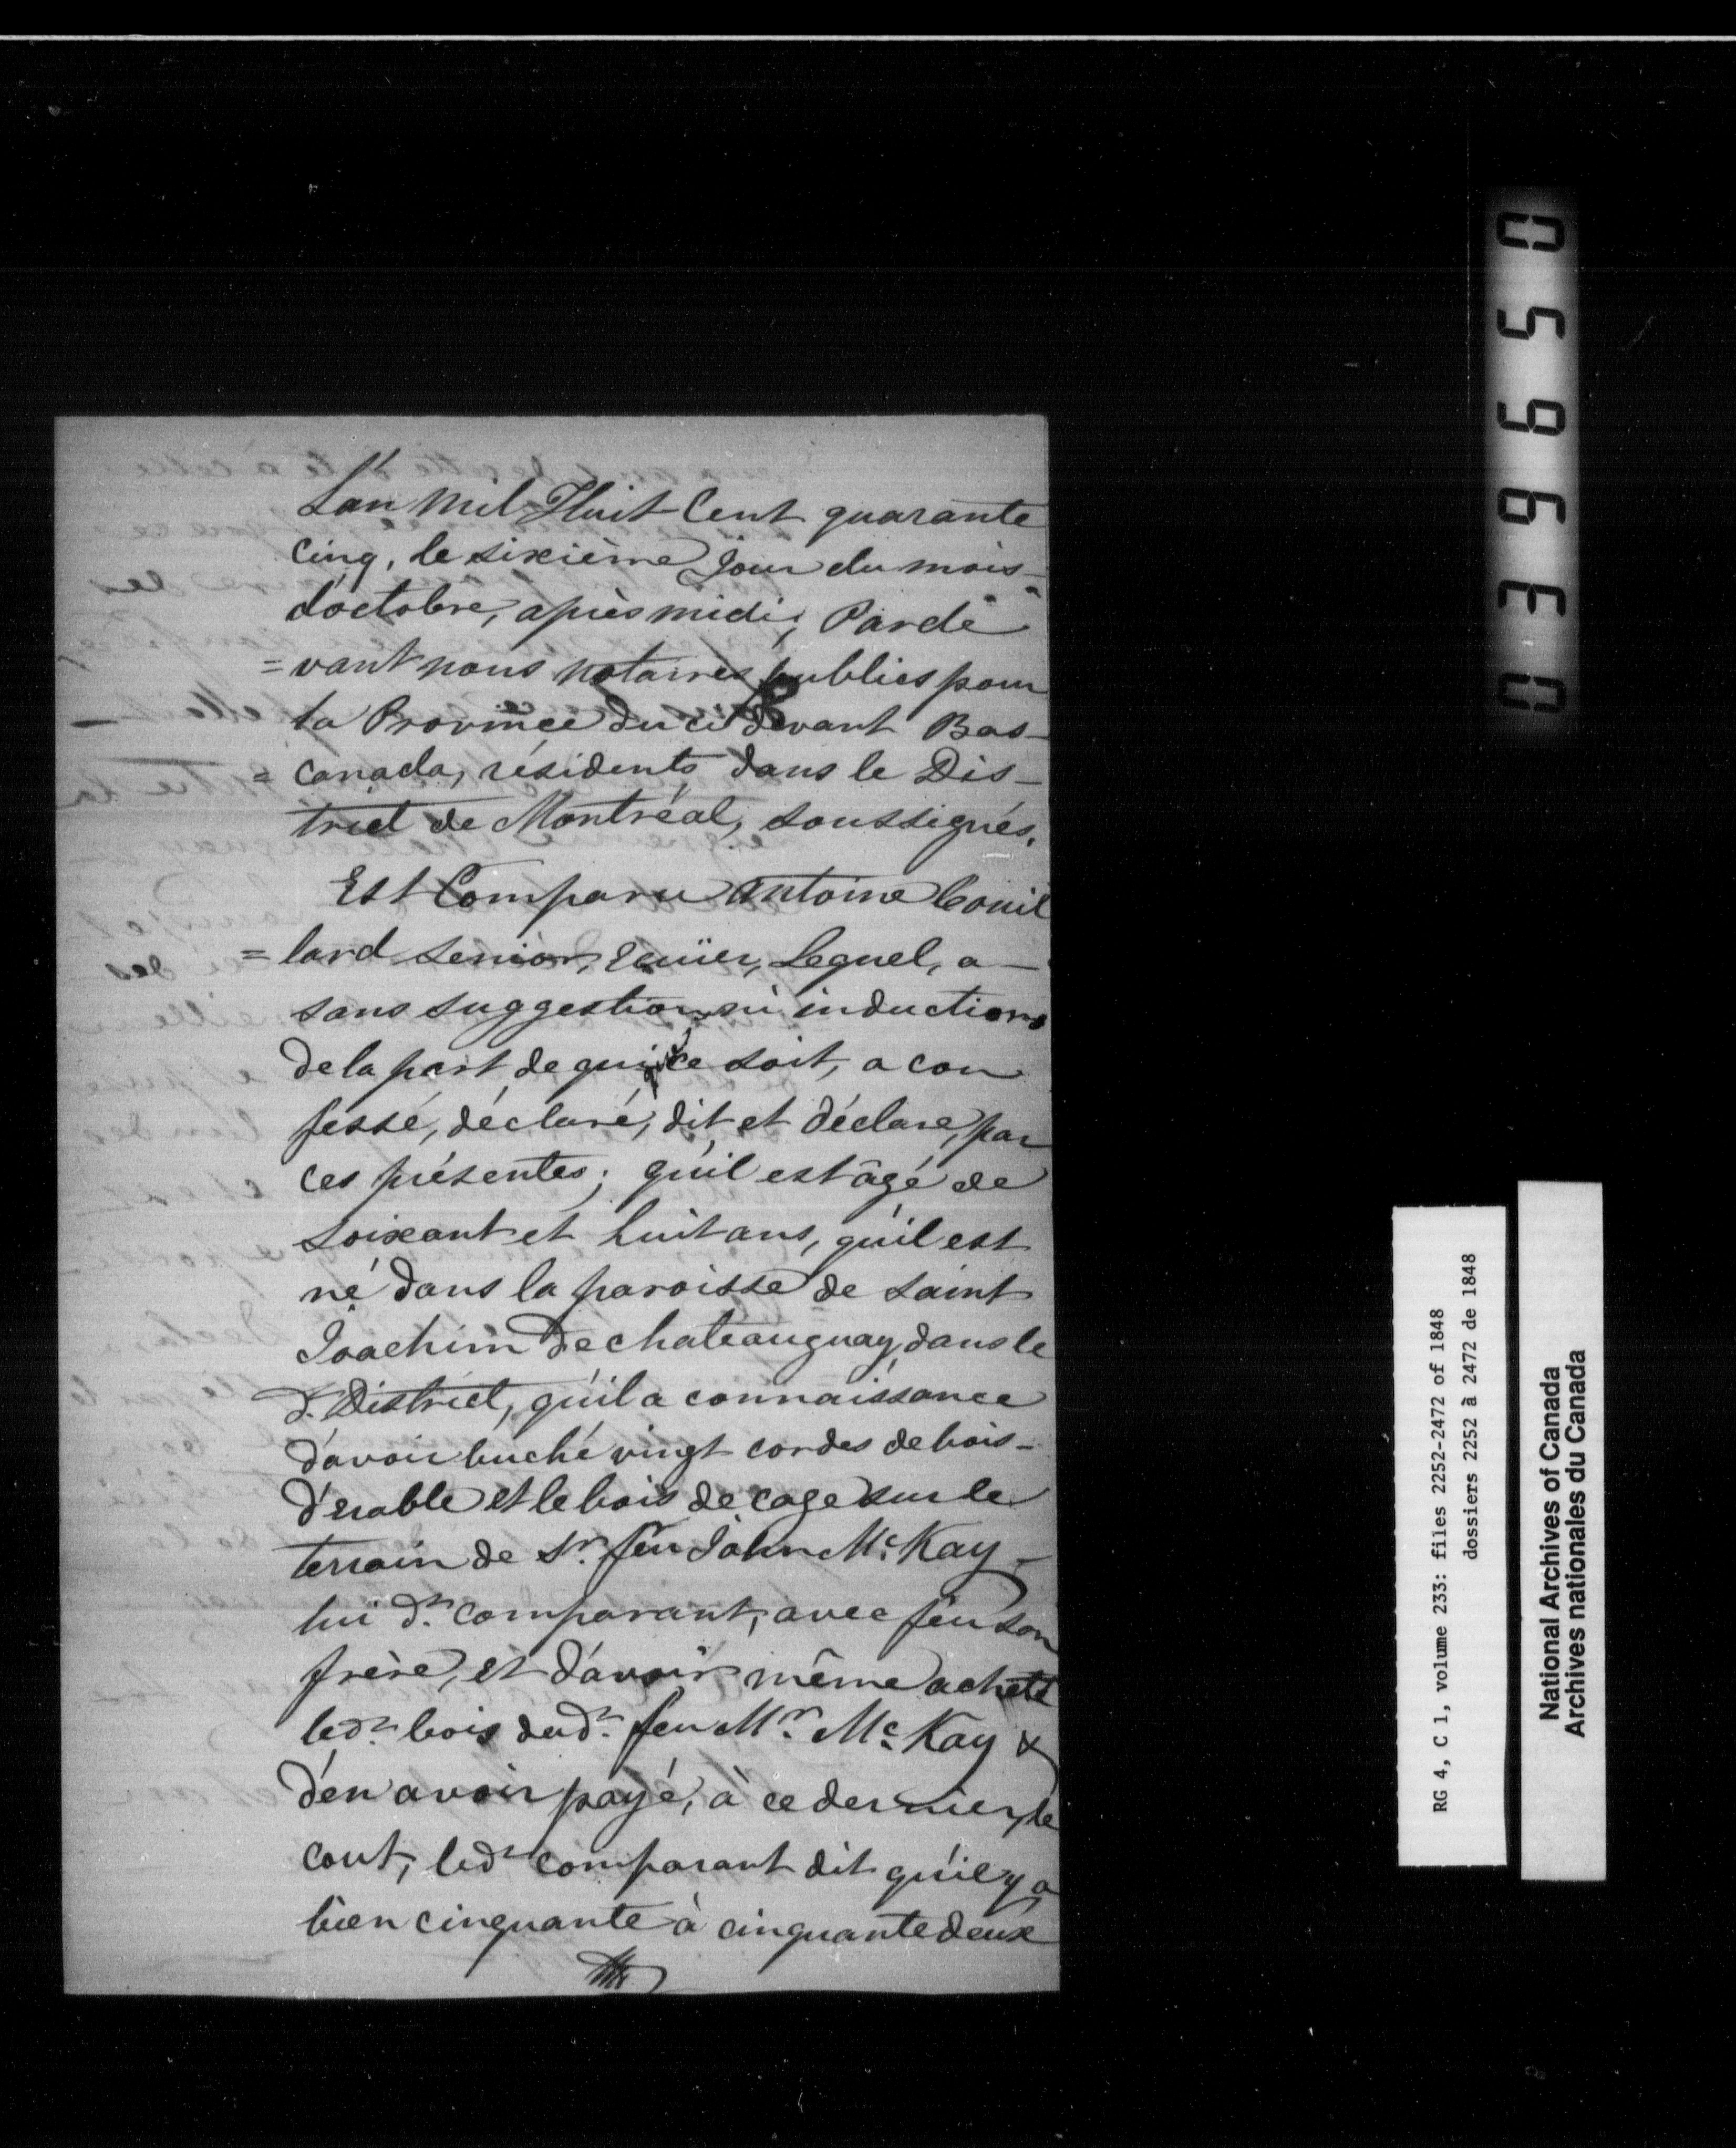 L'an Mil Huit Cent quarante
cinq, le sixième Jour du mois
d'octobre, après midi, Pardê
=vant nous notaires publics pour
la Province du ci devant Bas
= canada, résidents dans le Dis-
trict de Montréal, soussignés,
Est Comparu Antoine Couil
=lard senior, Ecuier, Lequel, a
sans suggestion ni inductions
de la part de qui que ce soit, a con
fessé, déclaré, dit et déclare, par
ces présentes; qu'il est âgé de
soixant et huit ans, qu'il est
né dans la paroisse de Saint
Joachim de chateauguay, dans le
d. District, qu'il a connaissance
d'avoir buché vingt cordes de bois-
d'érable et le bois de cage sur le
terrain de Sr. feu John Mc Kay-
lui dt. comparant, avec feu son
frère, et d'avoir même acheté
ledt bois dudt. feu Mr. Mc Kay &
d'en avoir payé, à ce dernier, le
cout, ledt comparant dit qu'il y a
bien cinquante à cinquante deux
039650
RG 4, C 1, volume 233: files 2252-2472 of 1848
dossiers 2252 à 2472 de 1848
National Archives of Canada
Archives nationales du Canada